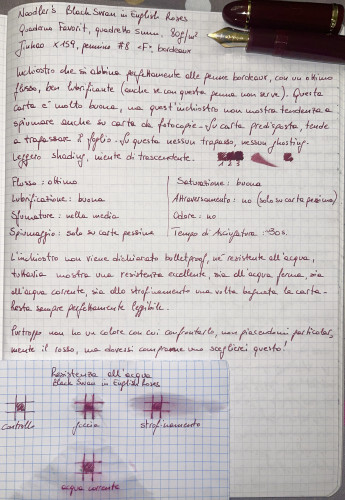 Noodler's Black Swan in English Roses
Quaderno Favorit, quadretto 5mm, 80g/m²
Jinhao x159, pennino #8 <F>, bordeaux
Inchiostro che si abbina perfettamente alle penne bordeaux, con un ottimo
flusso, ben lubrificante (anche se con questa penna non serve). Questa
carta e' molto buona, ma quest'inchiostro non mostra tendenza a
spiumare anche su carta da fotocopie. Su carta predisposta, tende
a trapassare il foglio. Su questa nessun trapasso, nessun ghosting.
Leggero shading, niente di trascendente.
1 2 3
Flusso: ottimo
Saturazione: buona
Lubrificazione: buona
Attraversamento: no (solo su carta pessima)
Sfumature: nella media
Odore: no
Spiumaggio: solo su carte pessime
Tempo di asciugatura: ~30s.
L'inchiostro non viene dichiarato bulletproof, né resistente all'acqua,
tuttavia mostra una resistenza eccellente, sia all'acqua ferma, sia
all'acqua corrente, sia allo strofinamento una volta bagnata la carta.
Resta sempre perfettamente leggibile.
Purtroppo non ho un colore con cui confrontarlo, non piacendomi particolar,
mente il rosso, ma dovessi comprarne uno sceglierei questo!
Resistenza all'acqua
Black Swan in English Roses
controllo
goccia
strofinamento
acqua corrente